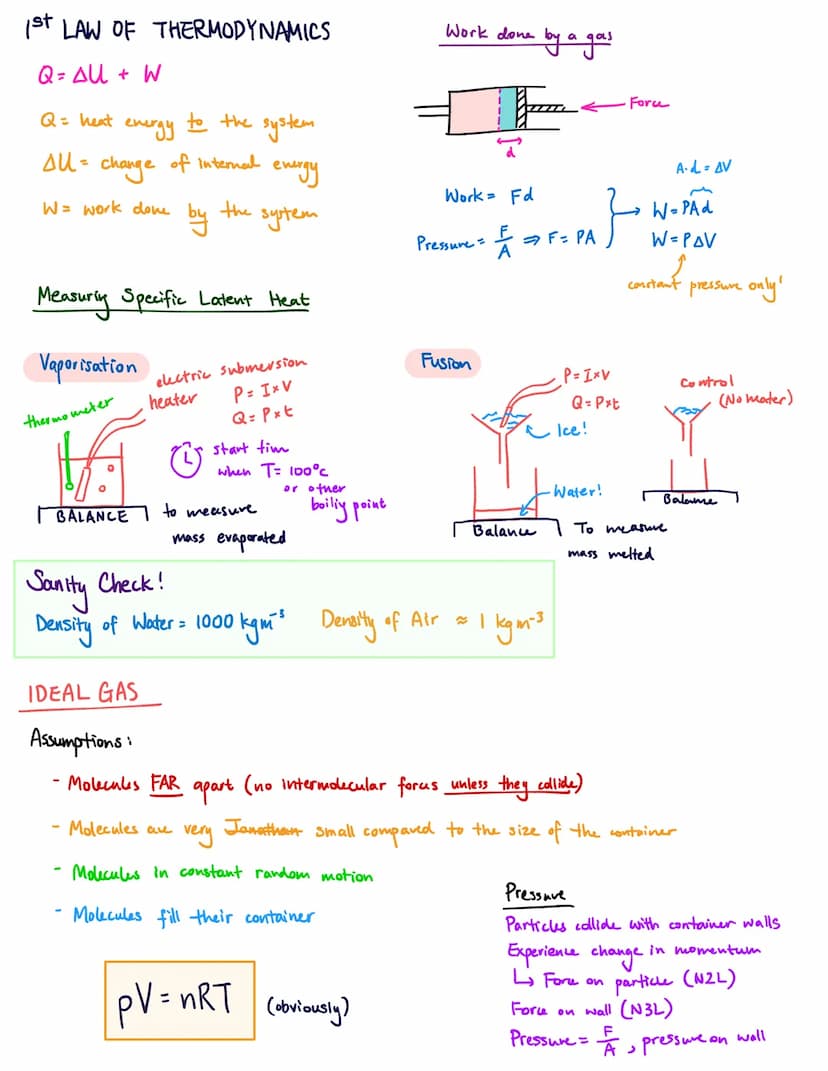 1st LAW OF THERMODYNAMICS
Q = ΔU + W
Q = heat energy to the system
ΔU = change of internal energy
W = work done by the system
Work done by a gas
Force
d
A·d = ΔV
Work = Fd
Pressure = F/A ⇒ F = PA
W = PAd
W = PΔV
constant pressure only!
Measuring Specific Latent Heat
Vaporisation
thermometer
electric submersion
heater
P = I×V
Q = P×t
start tim
when T = 100°C
or other
boiling point
BALANCE
to measure
mass evaporated
Fusion
P = I×V
Q = P×t
Ice!
Water!
Balance
To measure
mass melted
Control
(No heater)
Balance
Sanity Check!
Density of Water = 1000 kgm⁻³
Density of Air ≈ 1 kgm⁻³
IDEAL GAS
Assumptions:
- Molecules FAR apart (no intermolecular forces unless they collide)
- Molecules are very Jonathan small compared to the size of the container
- Molecules in constant random motion
- Molecules fill their container
pV = nRT
(obviously)
Pressure
Particles collide with container walls
Experience change in momentum
↳ Force on particle (N2L)
Force on wall (N3L)
Pressure = F/A, pressure on wall